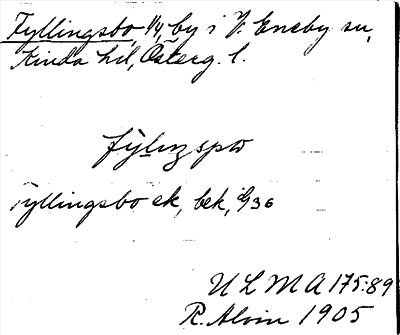 Fyllingsbo 1/4, by i V. Eneby sn,
Kinda hd, Österg. l.
fy̆liŋspω
Fyllingsbo ek, bek,
U L M A 175:89
R. Alvin 1905